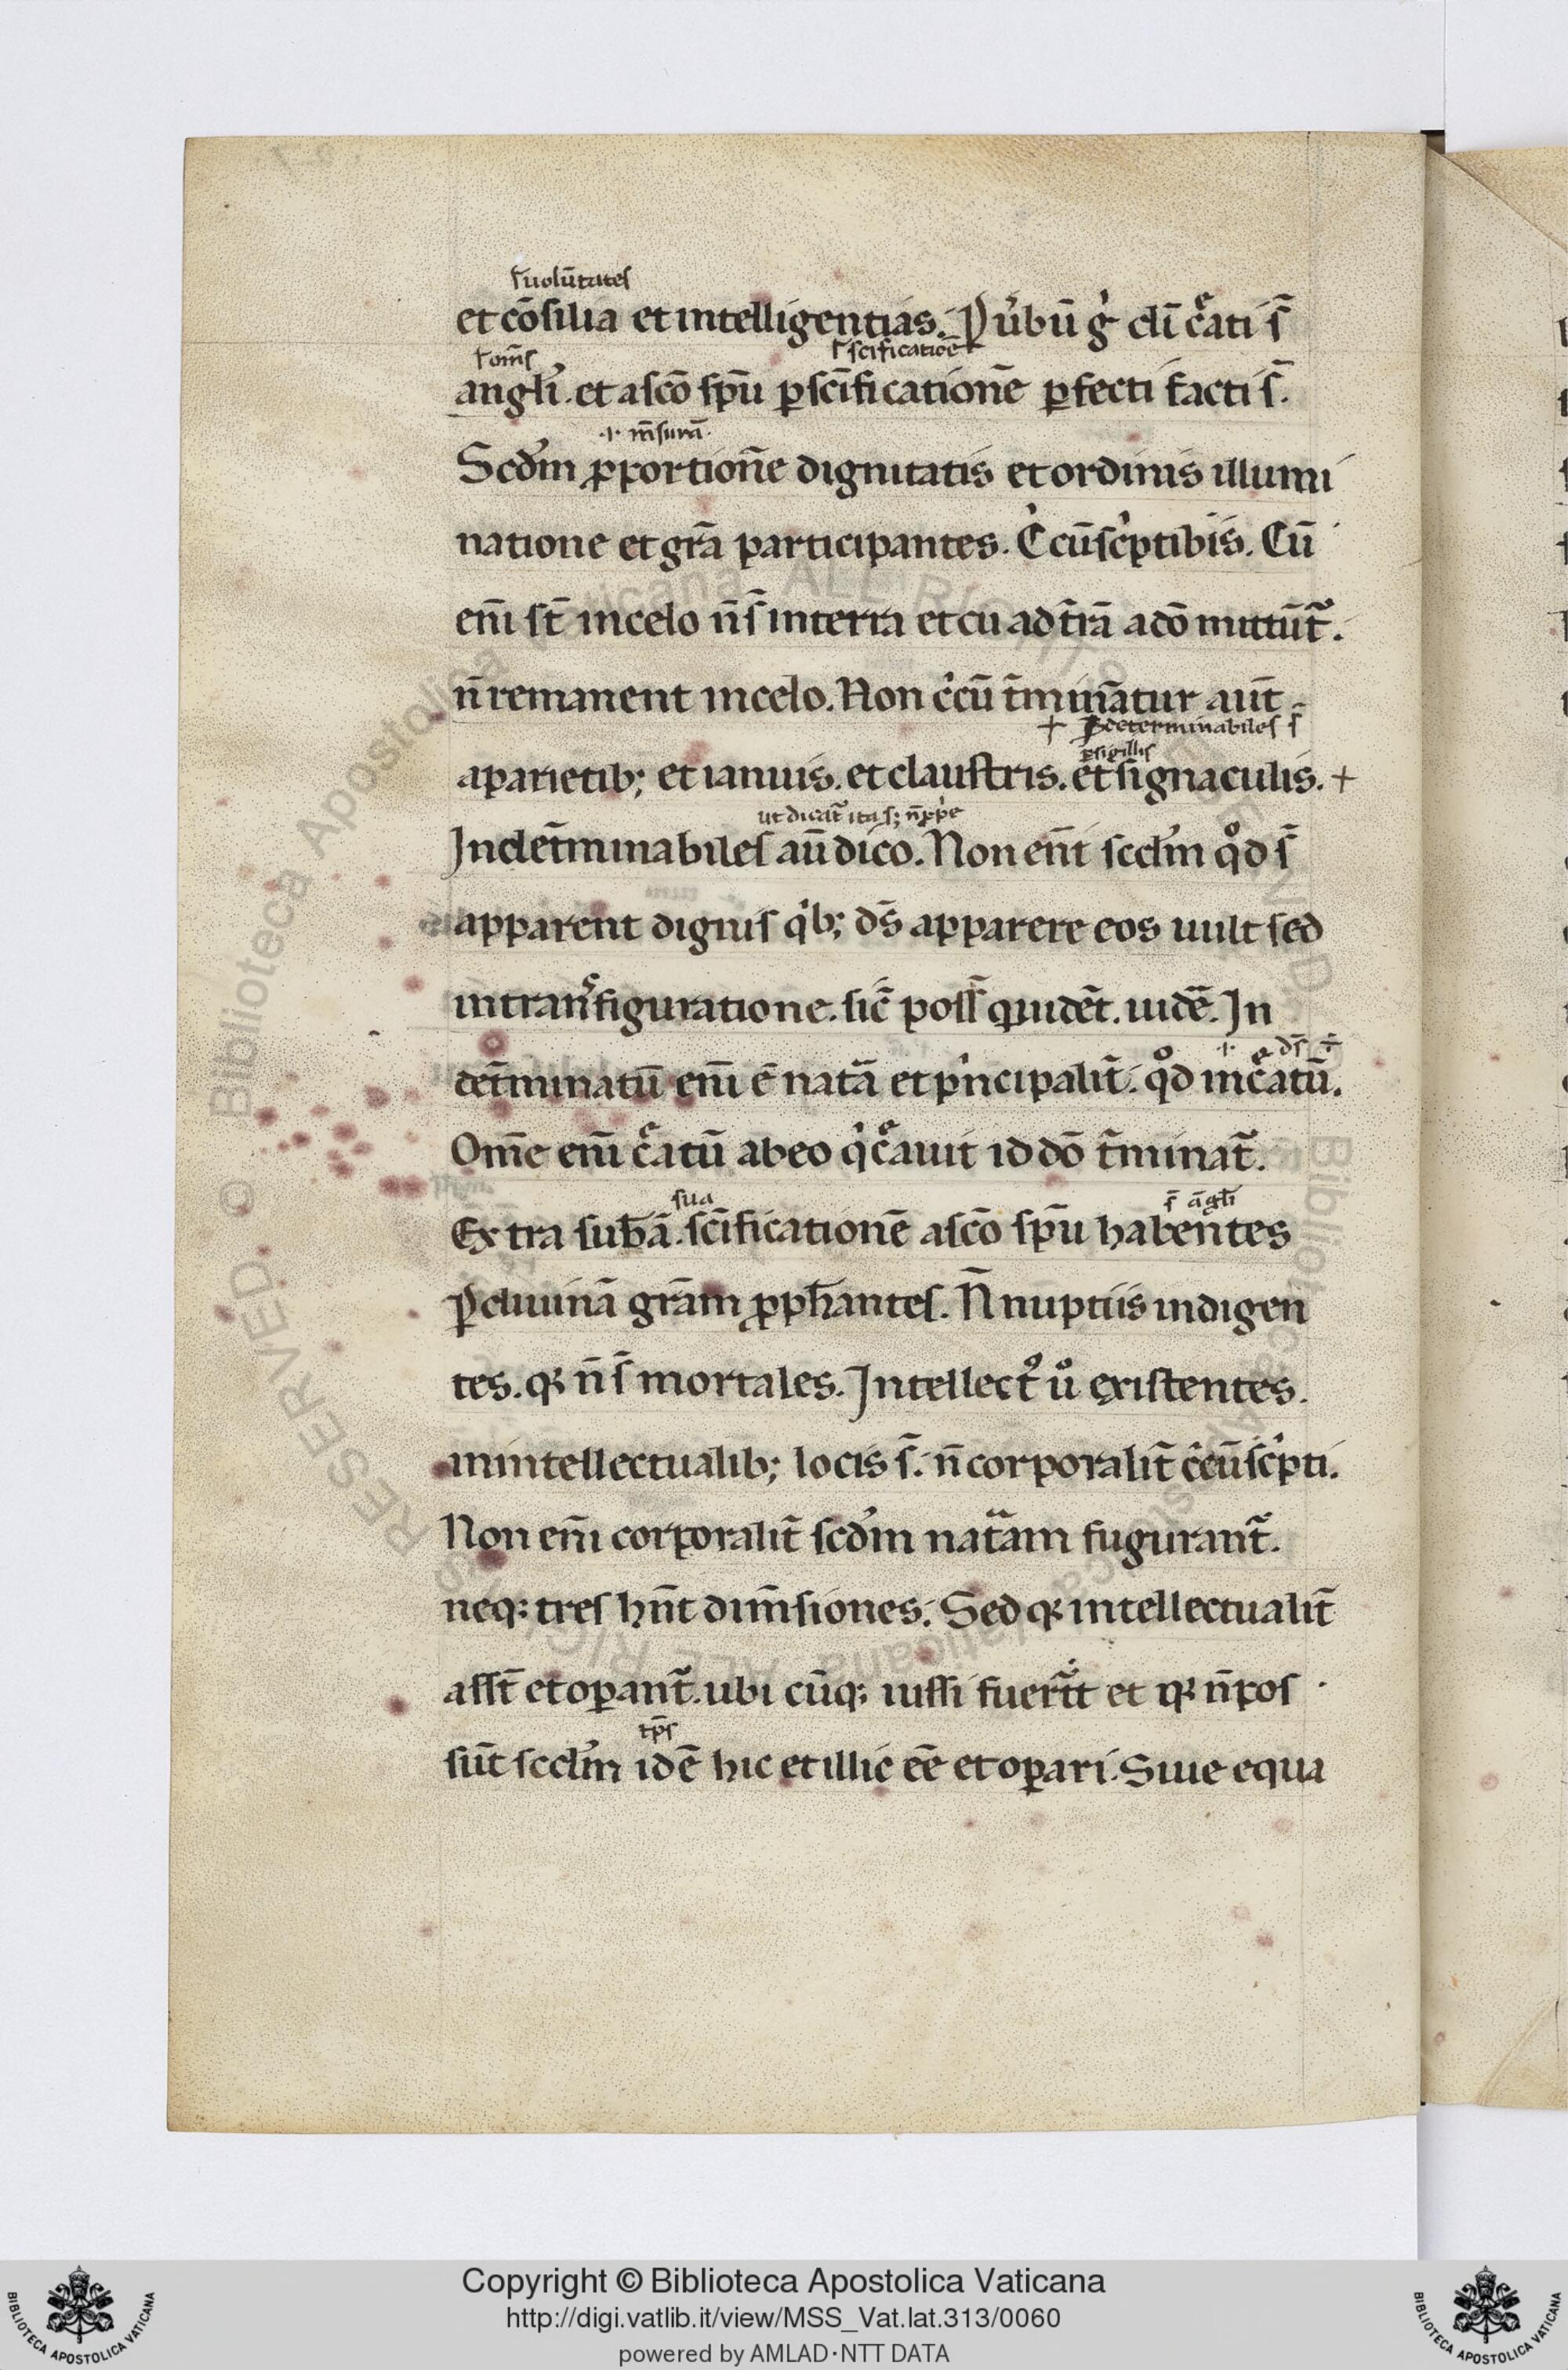 ꝉ uolūtates
et cōsilia et intelligentias. P u̾bū gͥ dī cͤati s̄
ꝉ om̄s ꝉ scificatiōē
angl̾i. et a scō sp̄u ꝑ sc̄ificationē ꝑfecti facti s̄.
·i· m̄surā.
Scd̾m ꝓportionē dignitatis et ordinis illumi
natione et gr̄a participantes. Cͥcūscͥptibiis. Cū
eni̅ st̄ in celo n̄ s̄ in terra et cū ad t̄rā a dō mittūt᷑.
n̄ remanent in celo. Non cͥcū t̄minātur aut̄
+ ꝉ determinabiles s̄
ꝉ sigillis
a parietib; et ianuis. et claustris. et signaculis. +
ut dicat᷑ ita s; n̄ ꝓpͥe
Indet̄minabiles au̅ dico. Non eni̅ scd̾m qͦd s̄
apparent dignis qͥb; ds̄ apparere eos uult sed
in transfiguratione. sic̄ poss̄ qui uidēt. uidē. In
·i· ds̄ ÷
det̄minatū eni̅ ē natᷓa et pͥncipalit̄. qͦd incͤatū.
Om̄e eni̅ cͤatū ab eo qͥ cͤauit id dō t̄minat᷑.
sua s̄ āgl̄i
Extra sub̄ā. sc̄ificationē a scō sp̄u habentes
ꝑ diuinā gr̄am ꝓph̄antes. N̄ nuptiis indigen
tes. qꝛ n̄ s̄ mortales. Intellectꝰ uͦ existentes.
in intellectualib; locis s̄. n̄ corporalit̄ cͥcūscͥpti.
Non eni̅ corporalit̄ scd̾m natᷓam fugurant᷑.
neqꝫ tres hn̄t dim̄siones. Sed qꝛ intellectualit̄
assēt et oꝑant᷑. ubi cūqꝫ iussi fuerīt et qꝛ n̄ pos
tp̄s
sūt scd̾m idē hic et illic eē et oꝑari. Siue equa
Copyright © Biblioteca Apostolica Vaticana
http://digi.vatlib.it/view/MSS_Vat.lat.313/0060
powered by AMLAD·NTT DATA